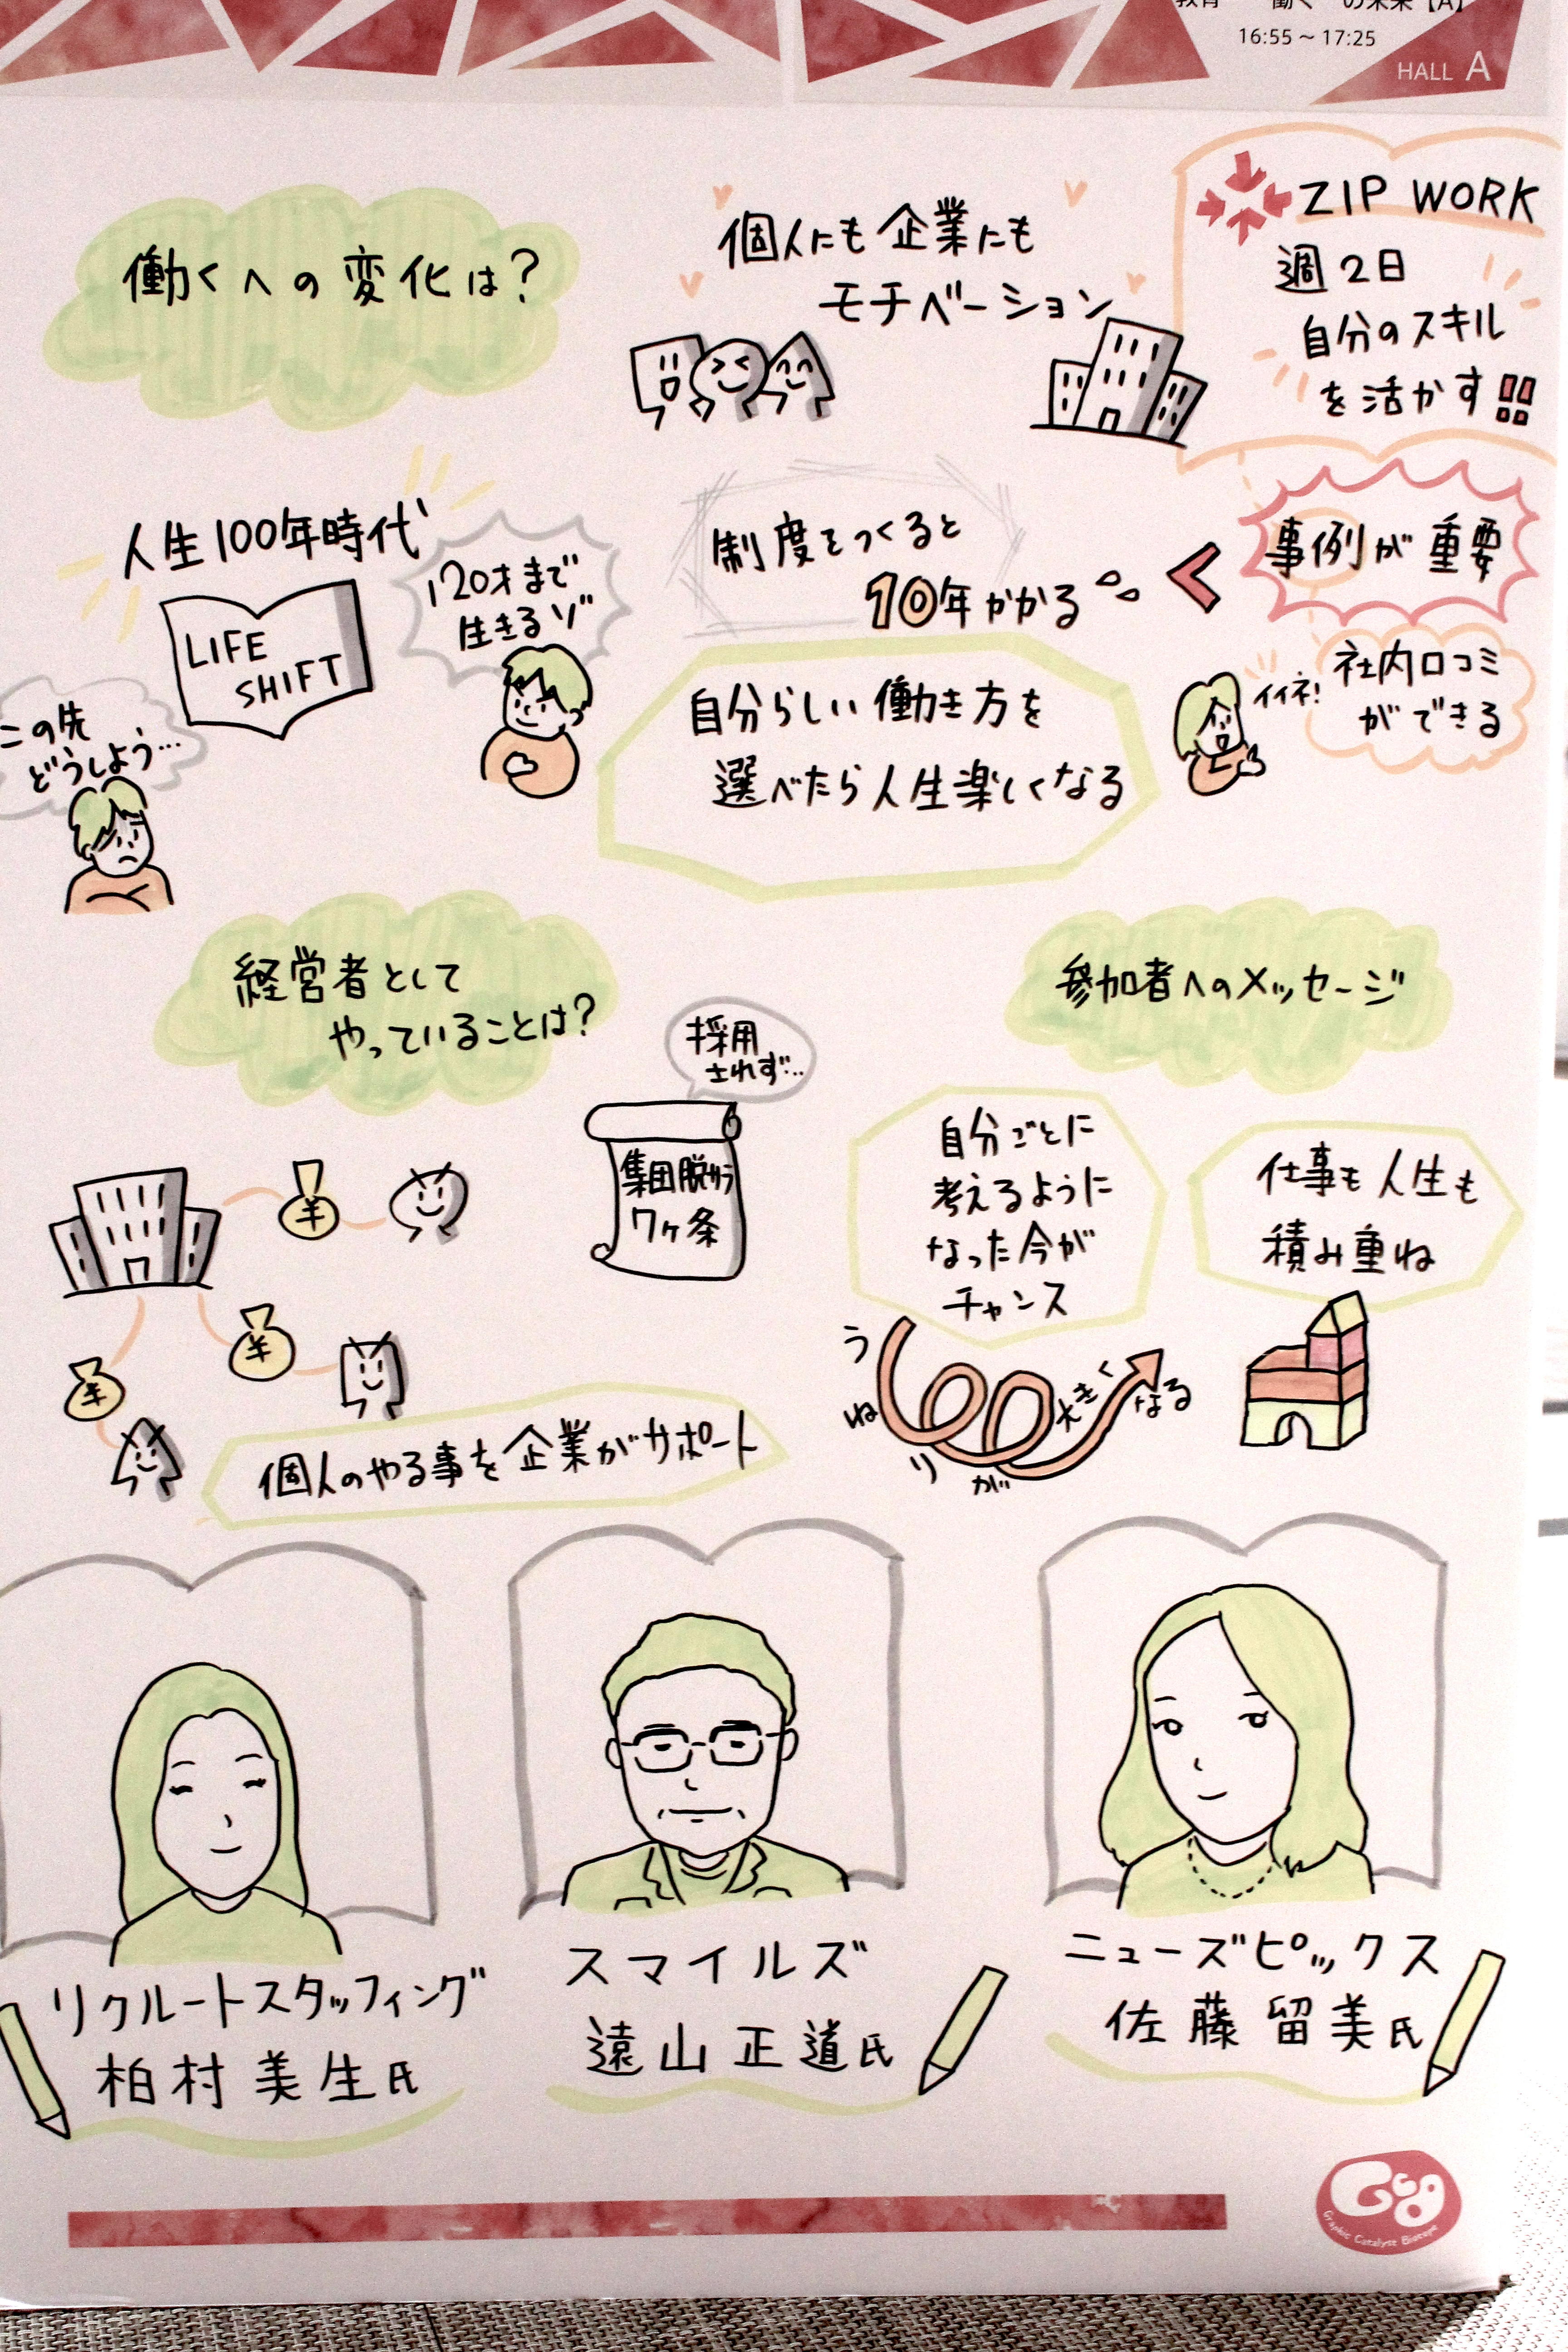 教育 "働く"の未来【A】
16:55 ~ 17:25
HALL A
働くへの変化は?
個人にも企業にも
モチベーション
ZIP WORK
週2日
自分のスキル
を活かす!!
人生100年時代
LIFE
SHIFT
120才まで
生きるゾ
この先
どうしよう…
制度をつくると
10年かかる
<
事例が重要
イイネ!
社内口コミ
ができる
自分らしい働き方を
選べたら人生楽しくなる
経営者として
やっていることは?
採用
されず…
集団脱サラ
7ヶ条
¥
¥
¥
個人のやる事を企業がサポート
参加者へのメッセージ
自分ごとに
考えるように
なった今が
チャンス
うねりが大きくなる
仕事も人生も
積み重ね
リクルートスタッフィング
柏村美生氏
スマイルズ
遠山正道氏
ニューズピックス
佐藤留美氏
Gcg
Graphic Catalyst Biotope